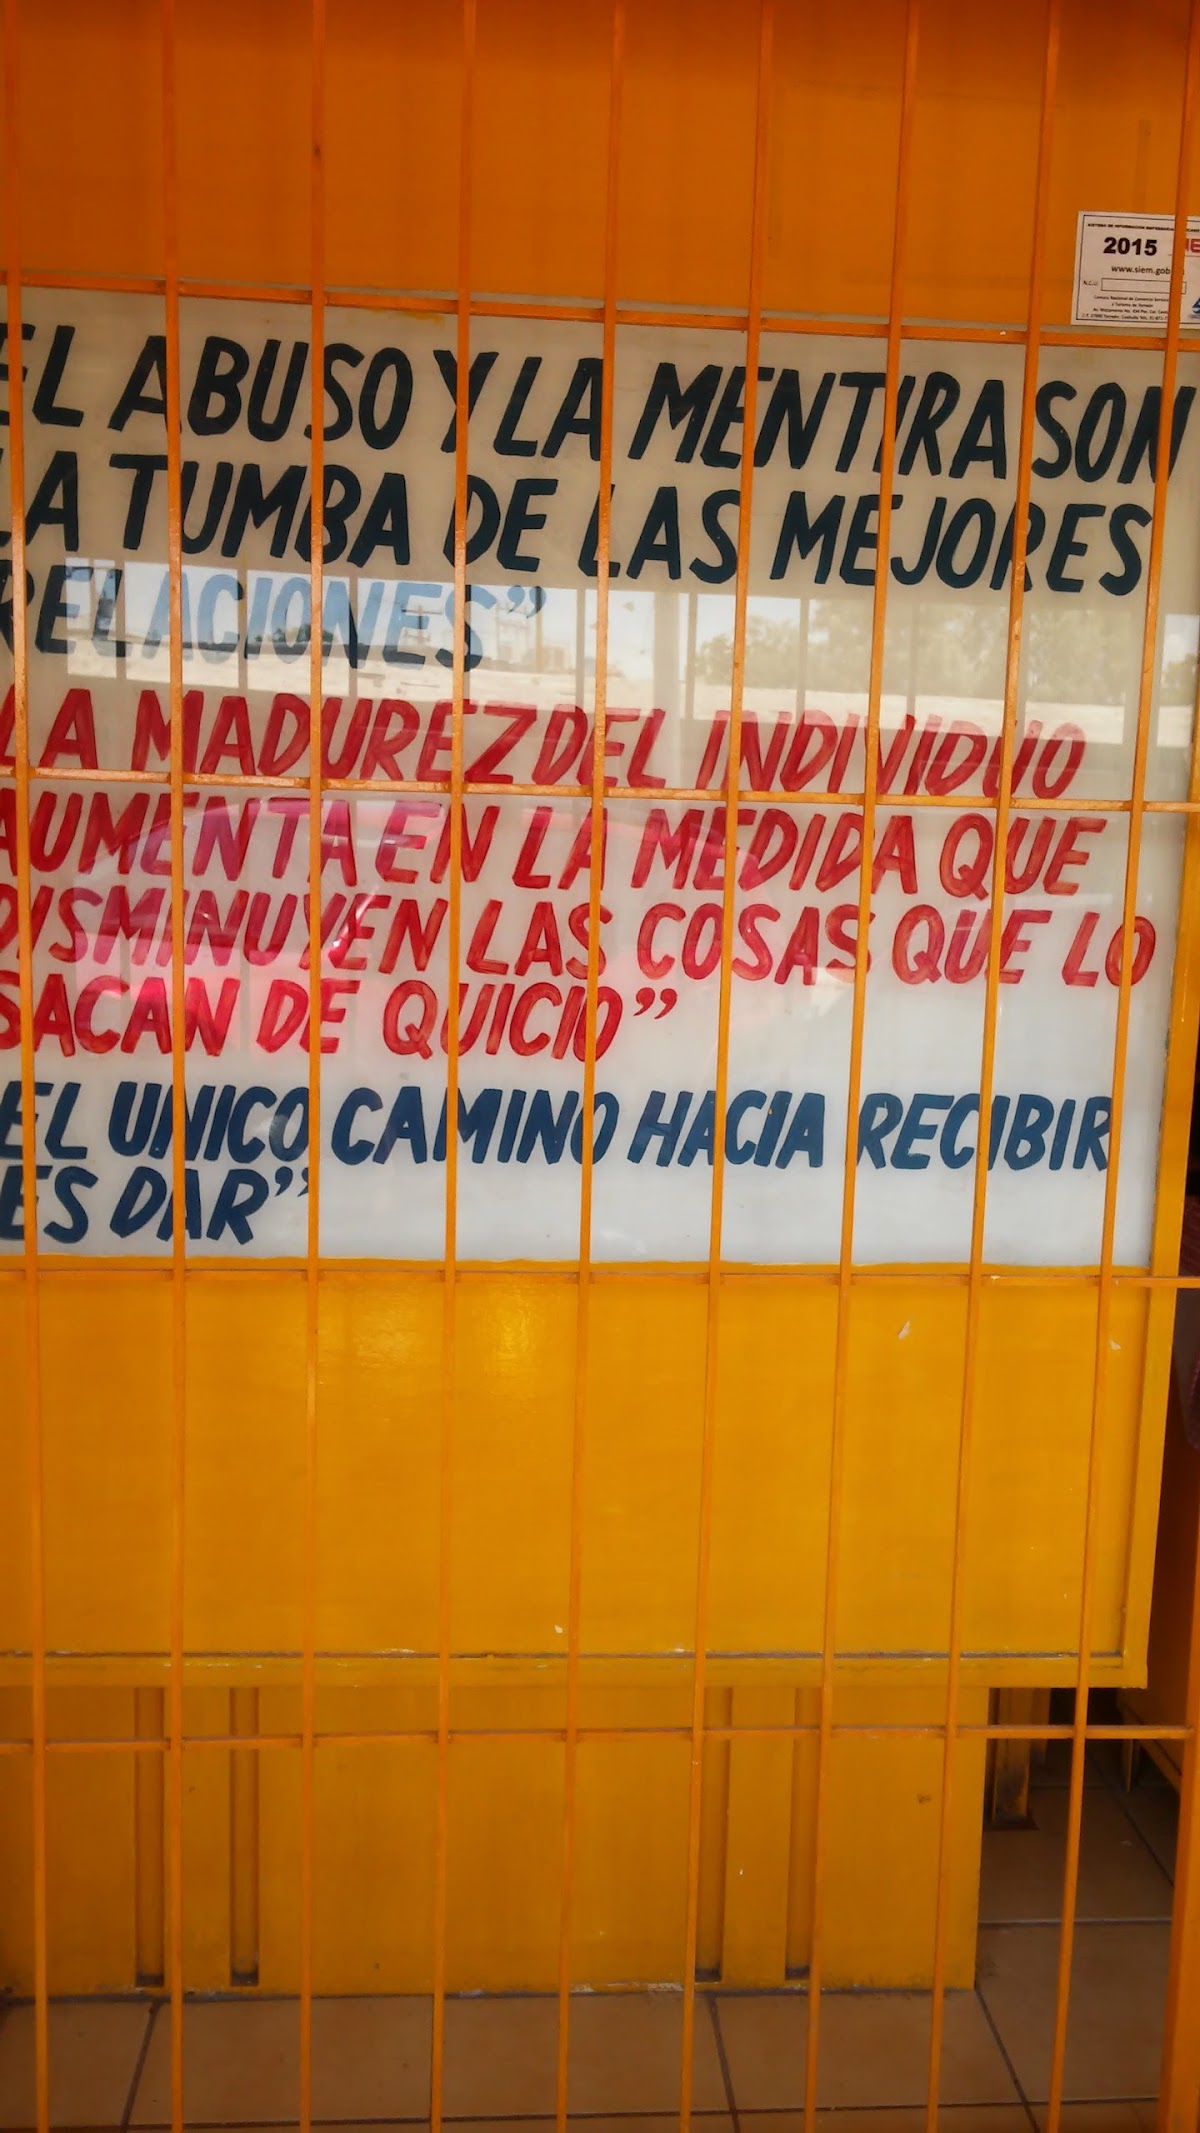 2015
www.siem.gob
EL ABUSO Y LA MENTIRA SON
LA TUMBA DE LAS MEJORES
RELACIONES”
LA MADUREZ DEL INDIVIDUO
AUMENTA EN LA MEDIDA QUE
DISMINUYEN LAS COSAS QUE LO
SACAN DE QUICIO”
EL UNICO CAMINO HACIA RECIBIR
ES DAR”